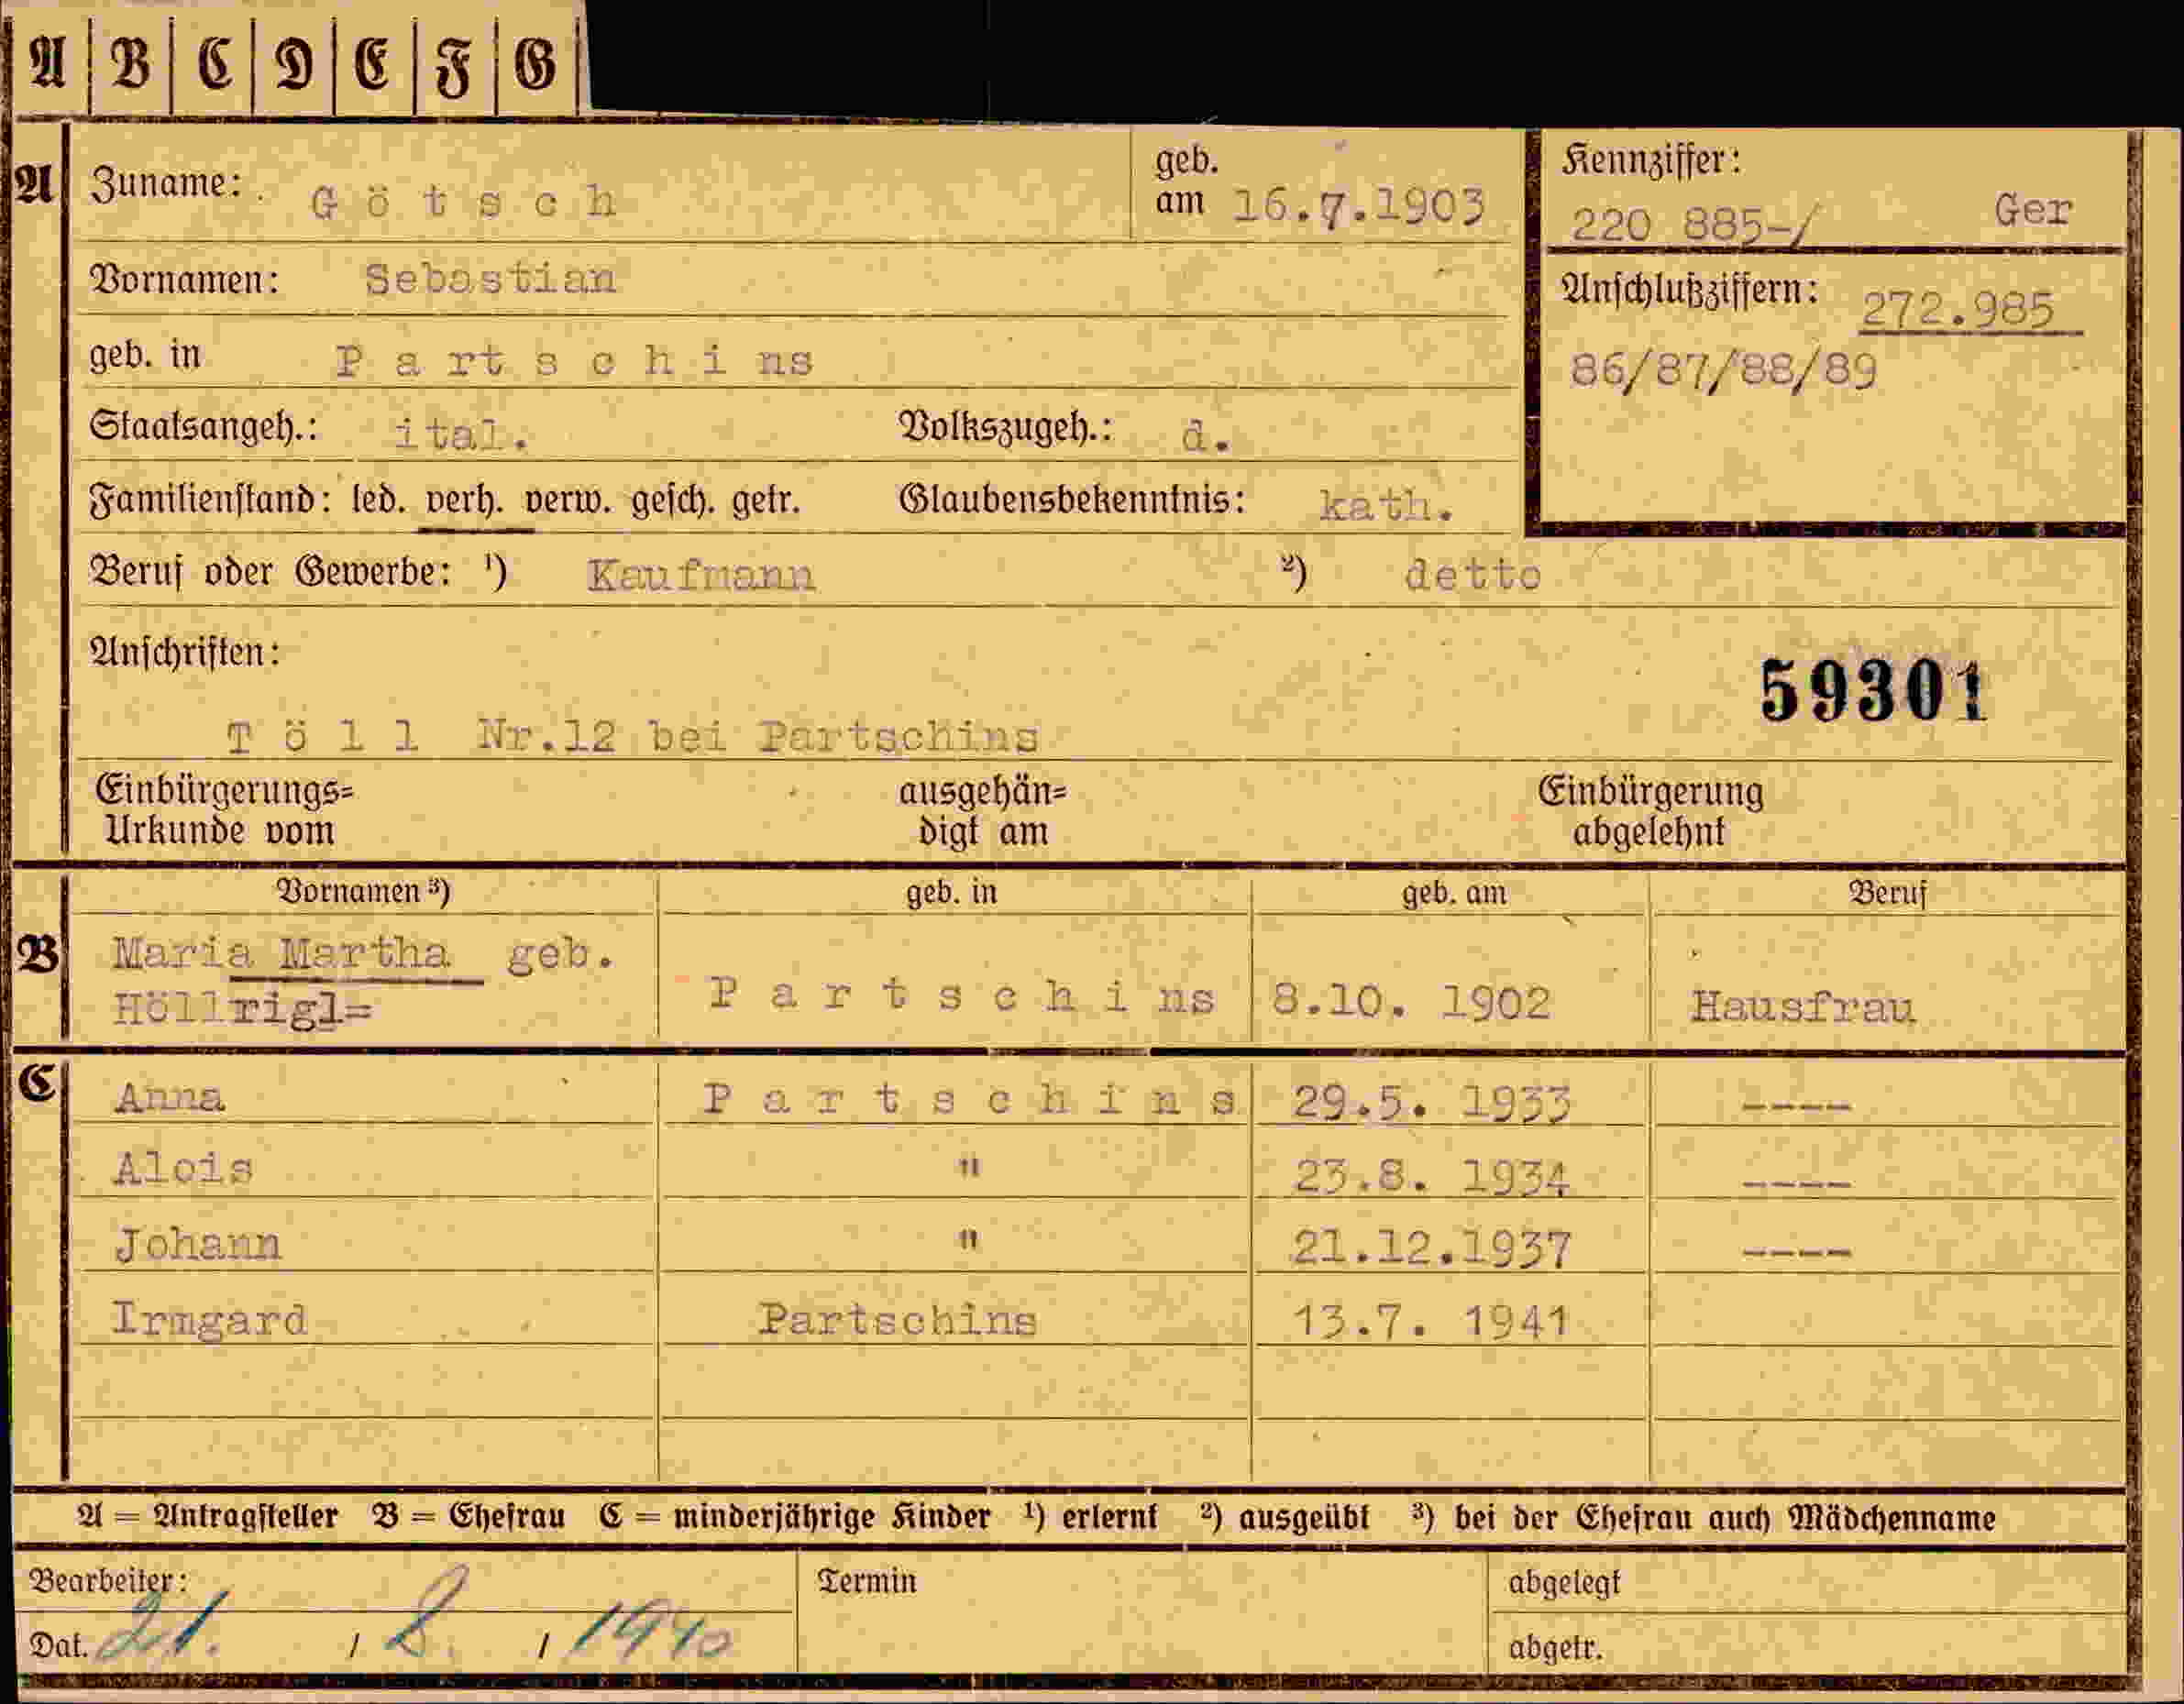 A B C D E F G
A Zuname: Götsch geb. am 16.7.1903
Kennziffer: 220 885-/ Ger
Vornamen: Sebastian
Anschlußziffern: 272.985
86/87/88/89
geb. in Partschins
Staatsangeh.: ital. Volkszugeh.: d.
Familienstand: led. verh. verw. gesch. getr. Glaubensbekenntnis: kath.
Beruf oder Gewerbe: ¹) Kaufmann ²) detto
Anschriften:
59301
Töll Nr.12 bei Partschins
Einbürgerungs= ausgehän= Einbürgerung
Urkunde vom digt am abgelehnt
Vornamen ³) geb. in geb. am Beruf
B Maria Martha geb.
Höllrigl= Partschins 8.10. 1902 Hausfrau
C Anna Partschins 29.5. 1933 ----
Alois " 23.8. 1934 ----
Johann " 21.12.1937 ----
Irmgard Partschins 13.7. 1941
A = Antragsteller B = Ehefrau C = minderjährige Kinder ¹) erlernt ²) ausgeübt ³) bei der Ehefrau auch Mädchenname
Bearbeiter: Termin abgelegt
Dat. 21. / 8. / 1940 abgetr.